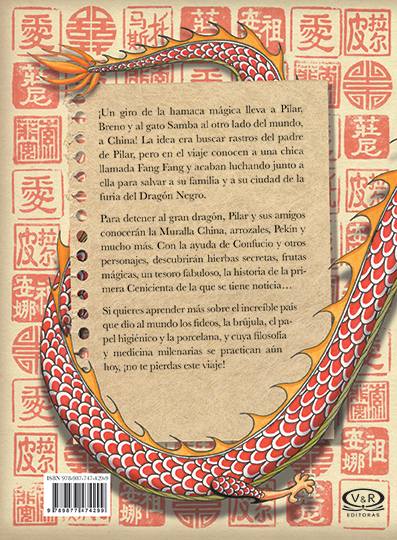 ¡Un giro de la hamaca mágica lleva a Pilar,
Breno y al gato Samba al otro lado del mundo,
a China! La idea era buscar rastros del padre
de Pilar, pero en el viaje conocen a una chica
llamada Fang Fang y acaban luchando junto a
ella para salvar a su familia y a su ciudad de la
furia del Dragón Negro.
Para detener al gran dragón, Pilar y sus amigos
conocerán la Muralla China, arrozales, Pekín y
mucho más. Con la ayuda de Confucio y otros
personajes, descubrirán hierbas secretas, frutas
mágicas, un tesoro fabuloso, la historia de la pri-
mera Cenicienta de la que se tiene noticia…
Si quieres aprender más sobre el increíble país
que dio al mundo los fideos, la brújula, el pa-
pel higiénico y la porcelana, y cuya filosofía
y medicina milenarias se practican aún
hoy, ¡no te pierdas este viaje!
ISBN 978-987-747-429-9
9 789877 474299
V&R
EDITORAS